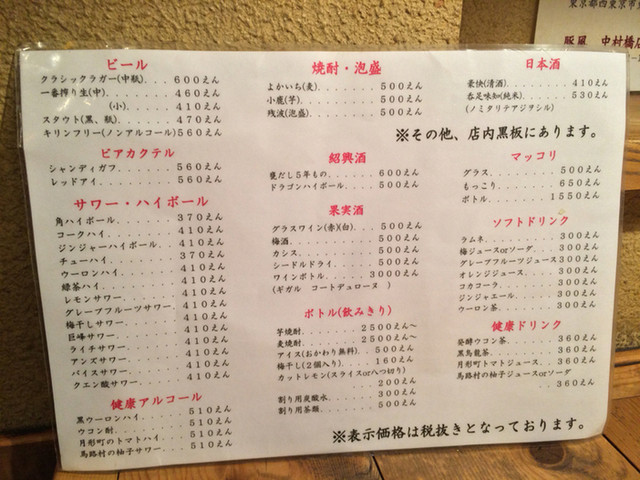 東京都西東京市
豚風 中村橋店
ビール
クラシックラガー(中瓶)....600えん
一番搾り生(中)....460えん
(小)....410えん
スタウト(黒、瓶)....470えん
キリンフリー(ノンアルコール)560えん
ビアカクテル
シャンディガフ....560えん
レッドアイ....560えん
サワー・ハイボール
角ハイボール....370えん
コークハイ....410えん
ジンジャーハイボール....410えん
チューハイ....370えん
ウーロンハイ....410えん
緑茶ハイ....410えん
レモンサワー....410えん
グレープフルーツサワー....410えん
梅干しサワー....410えん
巨峰サワー....410えん
ライチサワー....410えん
アンズサワー....410えん
バイスサワー....410えん
クエン酸サワー....410えん
健康アルコール
黒ウーロンハイ....510えん
ウコン酎....510えん
月形町のトマトハイ....510えん
馬路村の柚子サワー....510えん
焼酎・泡盛
よかいち(麦)....500えん
小鹿(芋)....500えん
残波(泡盛)....500えん
日本酒
豪快(清酒)....410えん
呑足味知(純米)....530えん
(ノミタリテアジヲシル)
※その他、店内黒板にあります。
紹興酒
甕だし5年もの....600えん
ドラゴンハイボール....500えん
果実酒
グラスワイン(赤)(白)...500えん
梅酒....500えん
カシス....500えん
シードルドライ....500えん
ワインボトル....3000えん
(ギガル コートデュローヌ )
ボトル(飲みきり)
芋焼酎....2500えん〜
麦焼酎....2500えん〜
アイス(おかわり無料)....500えん
梅干し(2個入り)....160えん
カットレモン(スライスor八つ切り)
200えん
割り用炭酸水....300えん
割り用茶類....500えん
マッコリ
グラス....500えん
もっこり....650えん
ボトル....1550えん
ソフトドリンク
ラムネ....300えん
梅ジュースorソーダ....300えん
グレープフルーツジュース300えん
オレンジジュース....300えん
コカコーラ....300えん
ジンジャエール....300えん
ウーロン茶....300えん
健康ドリンク
発酵ウコン茶....360えん
黒烏龍茶....360えん
月形町トマトジュース....360えん
馬路村の柚子ジュースorソーダ
360えん
※表示価格は税抜きとなっております。